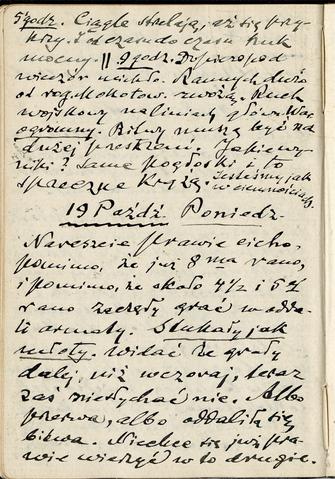 5 godz. Ciągle strzelają, aż się przy-
krzy. I od czasu do czasu huk
mocny. || 9 godz. Dopiero pod
wieczór ucichło. Rannych dużo
od rog. Mokotow. zwożą. Ruch
wojskowy na liniach główn. Wars
ogromny. Bitwy muszą być na
dużej przestrzeni. Jakie wy-
niki? Same pogłoski i to
sprzeczne krążą. Jesteśmy jak
w ciemnościach.
19 Paźdź. Poniedz.
Nareszcie prawie cicho,
pomimo, że już 8ma rano,
i pomimo, że około 4½ i 5ej
rano zaczęły grać w odda-
li armaty. Stukały jak
młoty. Widać że grały
dalej, niż wczoraj, teraz
zaś nie słychać nic. Albo
przerwa, albo oddaliła się
bitwa. Nie chce się już pra-
wie wierzyć w to drugie.